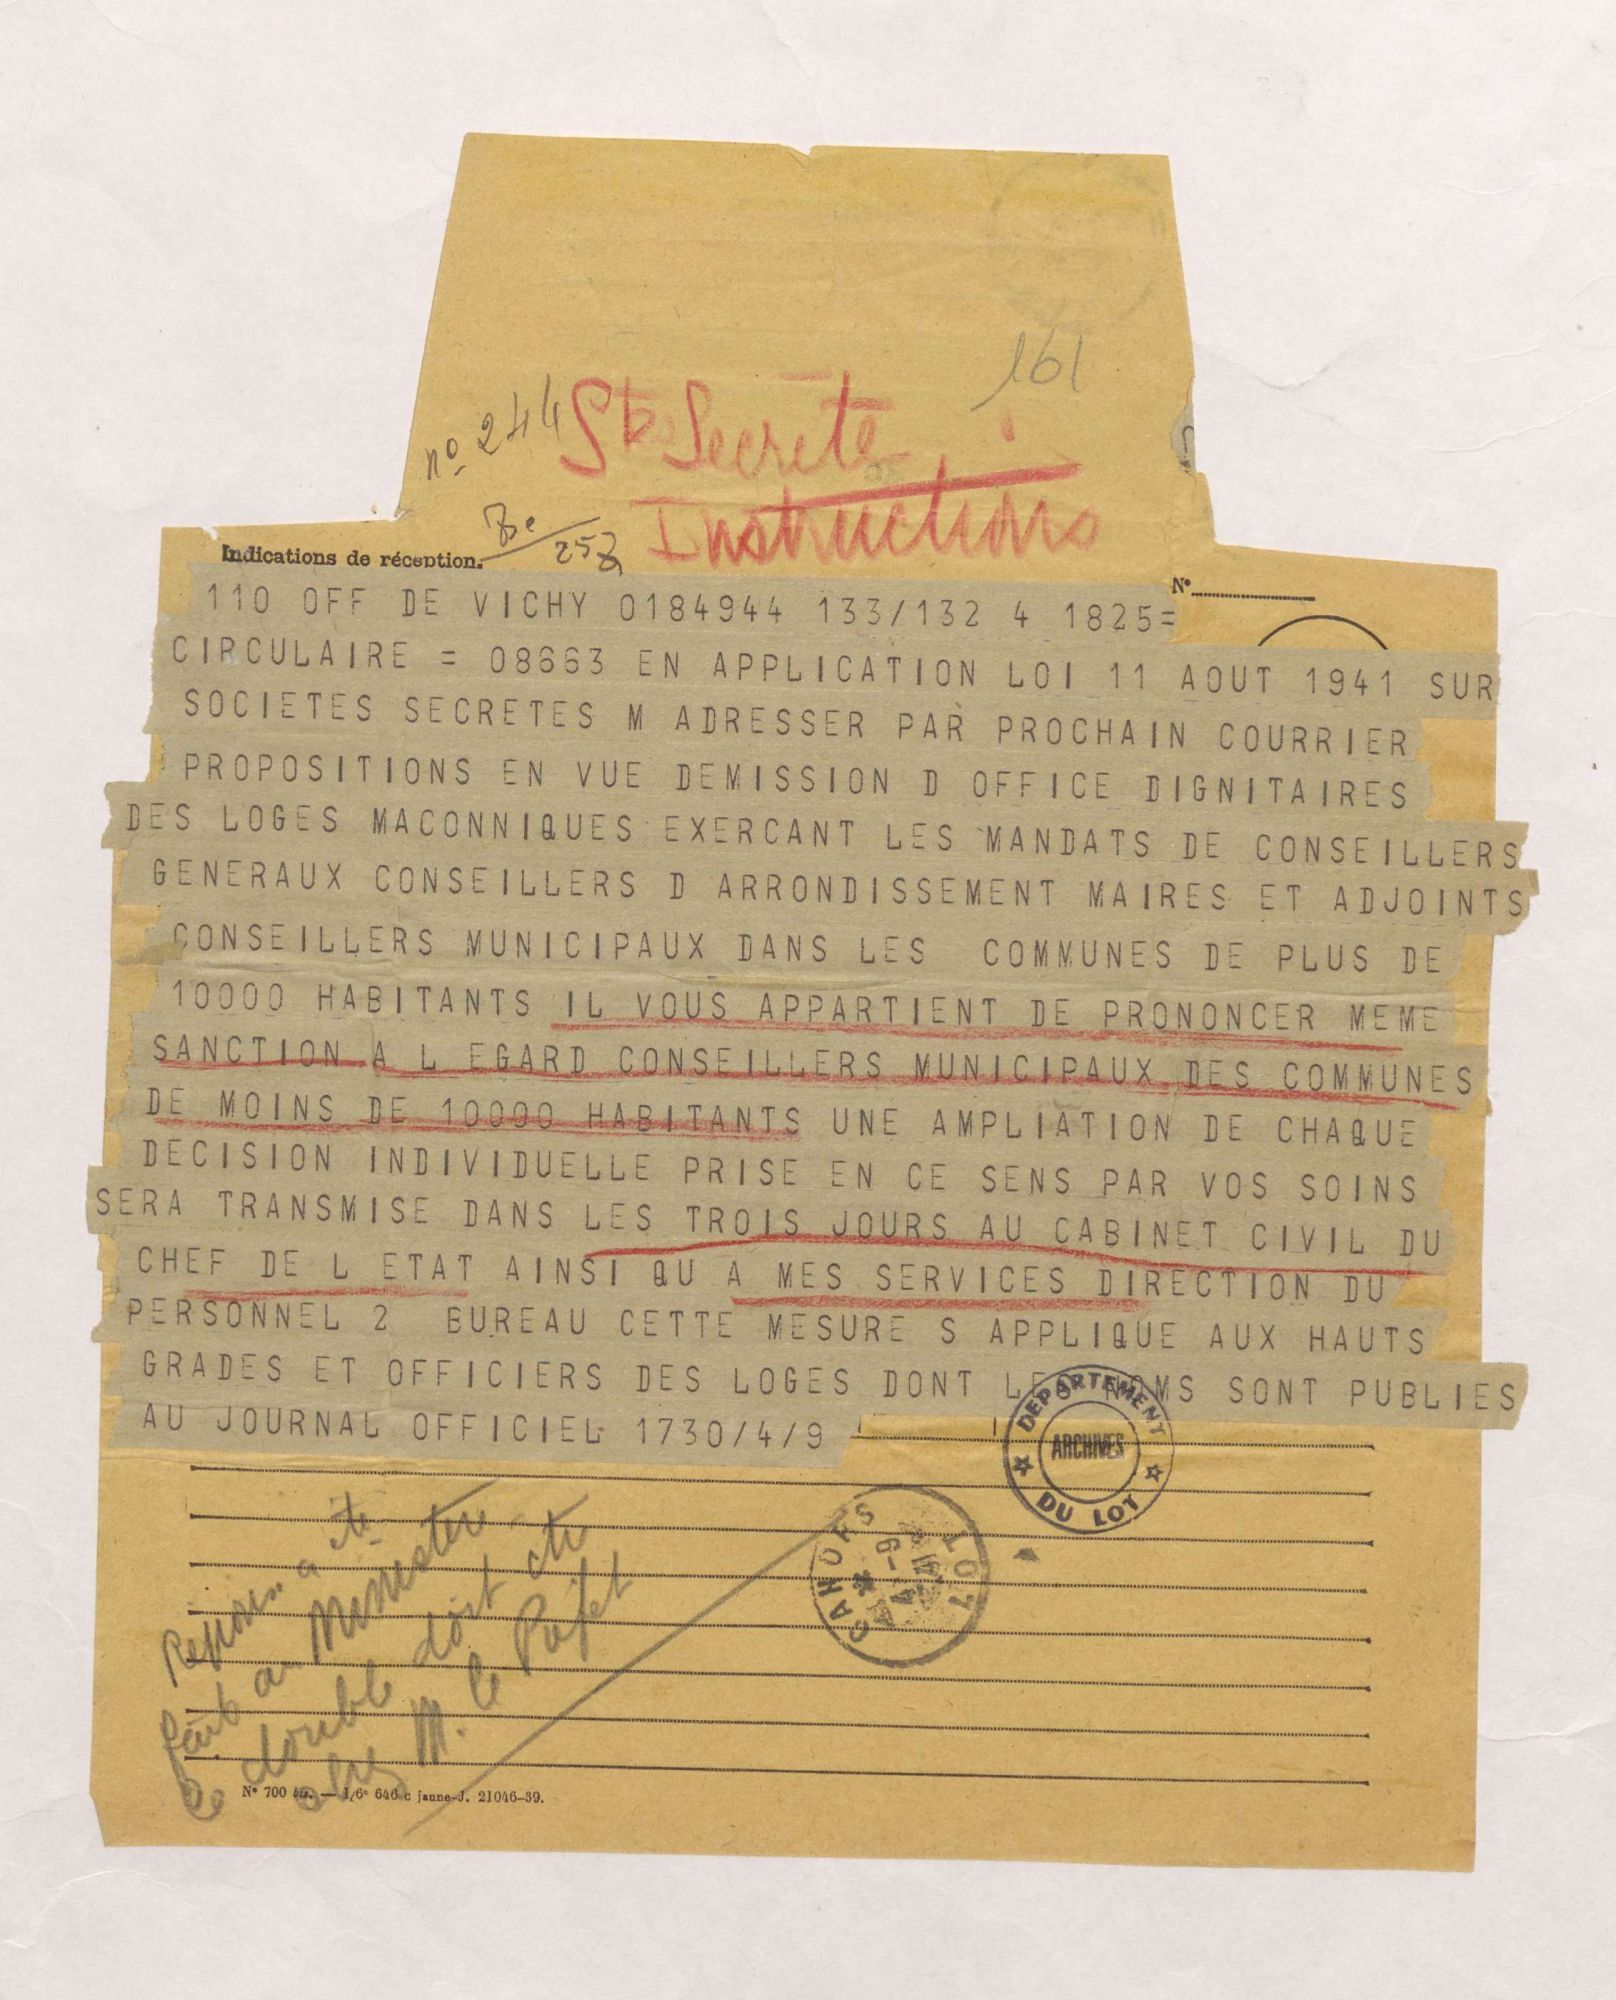 161
n° 244
Sté Secrète
Instructions
Indications de réception.
257
N°
110 OFF DE VICHY 0184944 133/132 4 1825=
CIRCULAIRE = 08663 EN APPLICATION LOI 11 AOUT 1941 SUR
SOCIETES SECRETES M ADRESSER PAR PROCHAIN COURRIER
PROPOSITIONS EN VUE DEMISSION D OFFICE DIGNITAIRES
DES LOGES MACONNIQUES EXERCANT LES MANDATS DE CONSEILLERS
GENERAUX CONSEILLERS D ARRONDISSEMENT MAIRES ET ADJOINTS
CONSEILLERS MUNICIPAUX DANS LES COMMUNES DE PLUS DE
10000 HABITANTS IL VOUS APPARTIENT DE PRONONCER MEME
SANCTION A L EGARD CONSEILLERS MUNICIPAUX DES COMMUNES
DE MOINS DE 10000 HABITANTS UNE AMPLIATION DE CHAQUE
DECISION INDIVIDUELLE PRISE EN CE SENS PAR VOS SOINS
SERA TRANSMISE DANS LES TROIS JOURS AU CABINET CIVIL DU
CHEF DE L ETAT AINSI QU A MES SERVICES DIRECTION DU
PERSONNEL 2 BUREAU CETTE MESURE S APPLIQUE AUX HAUTS
GRADES ET OFFICIERS DES LOGES DONT LES NOMS SONT PUBLIES
AU JOURNAL OFFICIEL 1730/4/9
DEPARTEMENT
ARCHIVES
DU LOT
CAHORS
LOT
Réponse a été
faite au Ministère
Le double doit être
chez M. le Préfet
N° 700 bis. — 1/6e 646 c jaune-J. 21046-39.